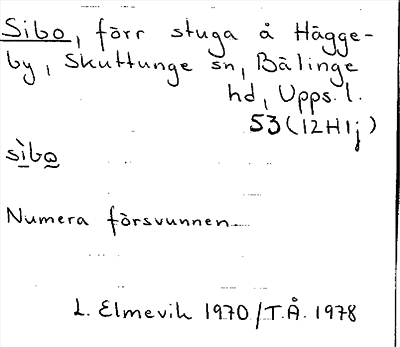 Sibo, förr stuga å Hägge-
by, Skuttunge sn, Bälinge
hd, Upps. l.
53 (12H1j)
sìbo
Numera försvunnen
L. Elmevik 1970/T.Å. 1978